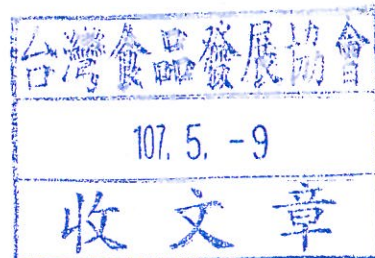 台灣食品發展協會
107. 5. -9
收文章